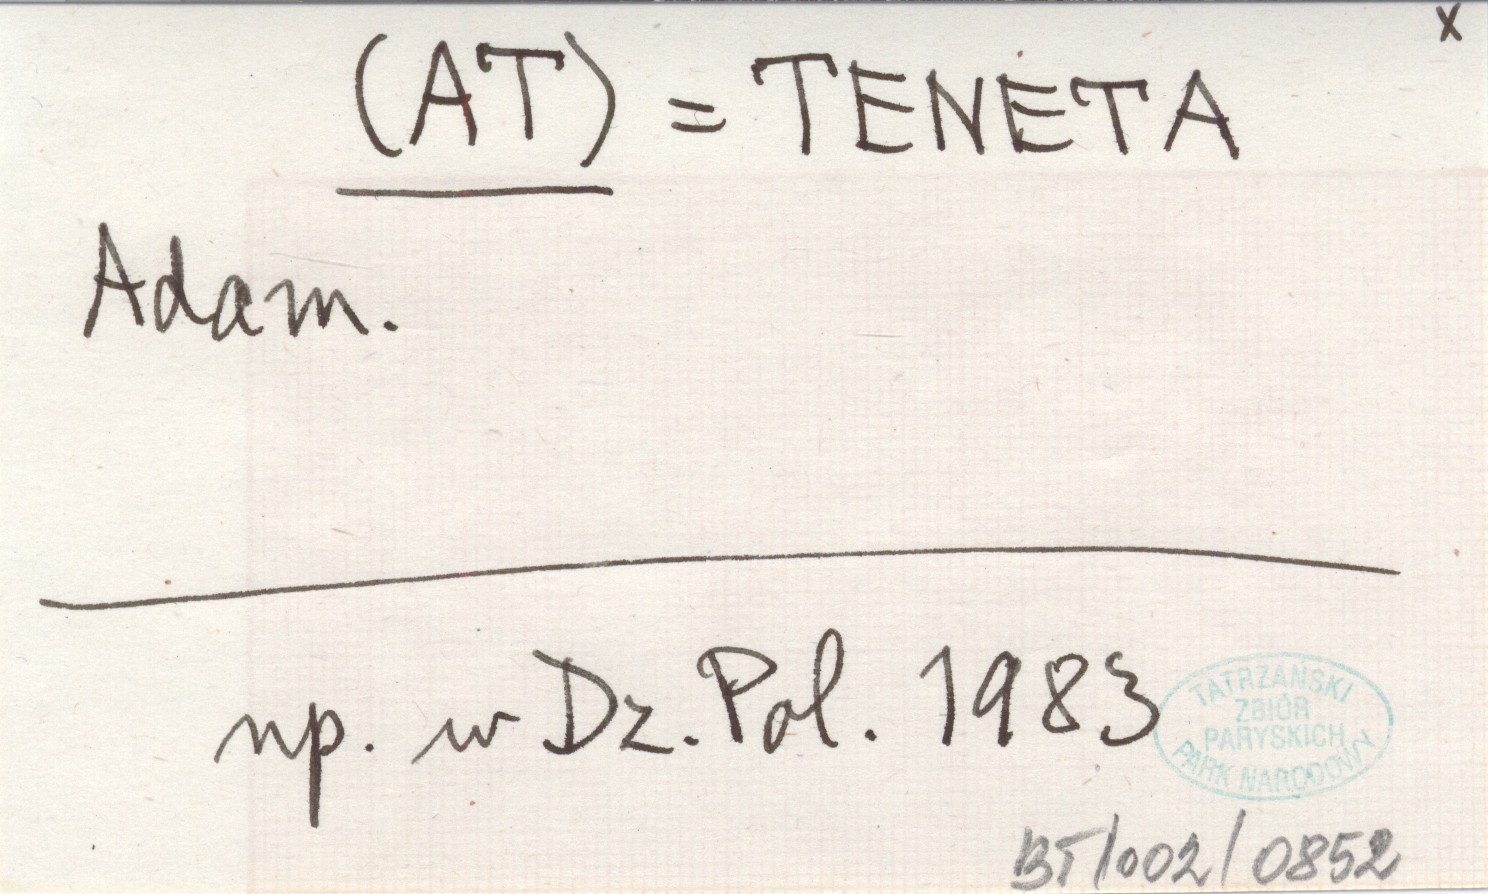 x
(AT) = TENETA
Adam.
np. w Dz. Pol. 1983
TATRZAŃSKI
ZBIÓR
PARYSKICH
PARK NARODOWY
BT/002/0852